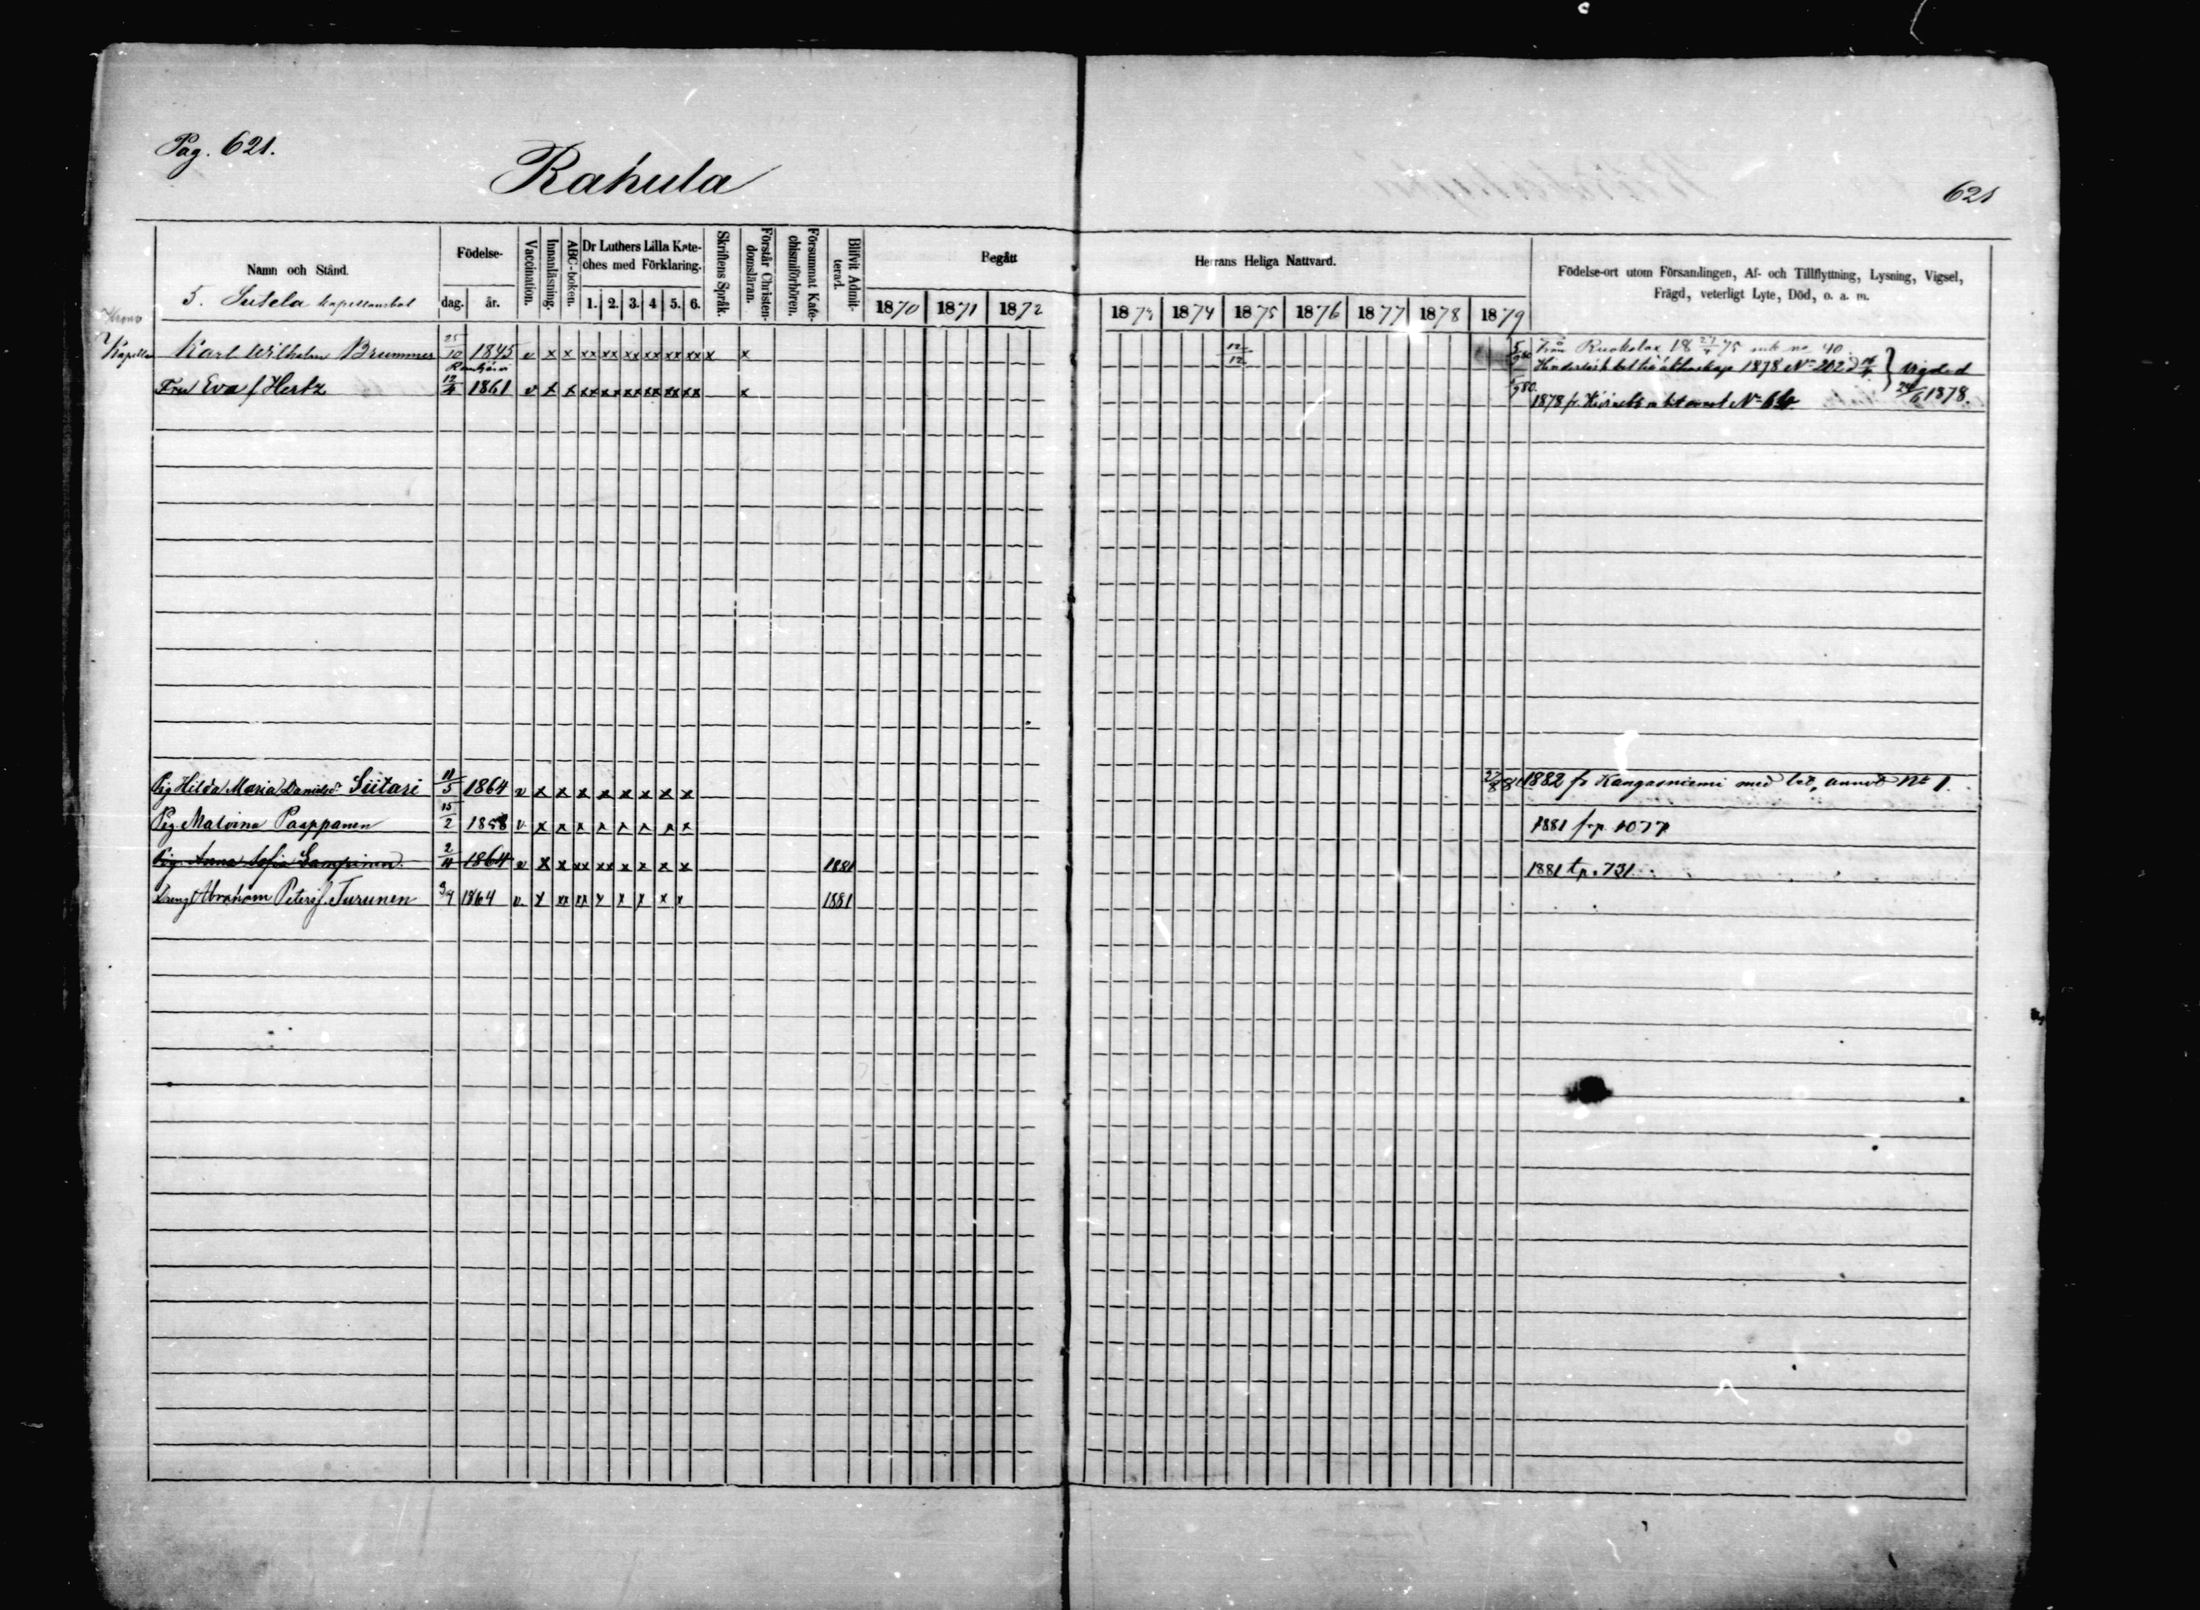 Pag. 621.
Rahula
621
Namn och Stånd.
Födelse-
dag. år.
Vaccination.
Innanläsning.
ABC-boken.
Dr Luthers Lilla Kate-
ches med Förklaring.
1. 2. 3. 4 5. 6.
Skriftens Språk.
Förstår Christen-
domsläran.
Försummat Kate-
chismiförhören.
Blifvit Admit-
terad.
Begått
Herrans Heliga Nattvard.
1870 1871 1872
1873 1874 1875 1876 1877 1878 1879
Födelse-ort utom Församlingen, Af- och Tillflyttning, Lysning, Vigsel,
Frägd, veterligt Lyte, Död, o. a. m.
5. Sutela kapellansbol
Kapellan Karl Wilhelm Brummer 25/10 1845 v x x xx xx xx xx xx xx x x 12/12 från Ruokolax 18 27/4 75 no 40.
Hinderslöshetbet till äktenskap 1878 No 202 vigded
Fru Eva f Hertz 12/4 1861 v x x xx xx xx xx xx xx x 1878 fr. No 64. 24/6 1878.
Pig Hilda Maria Danielsd. Siitari 11/5 1864 v x x x x x x x x 1882 fr Kangasniemi med bet. No 1.
Pig Malvina Paappanen 15/2 1858 v. x x x x x x x x 1881 frp. 1077
Pig Anna Sofia Lampinen 2/11 1864 v x x xx xx x x x x 1881 1881 t p. 731
Dreng Abraham Petersf. Turunen 3/4 1864 v. x xx xx x x x x x 1881